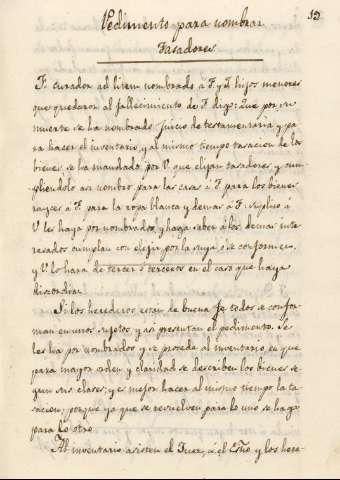 Pedimento para nombrar
Tasadores.
F. curador ad litem nombrado á F. y F. hijos menores
que quedaron al fallecimiento de F. digo: Que por su
muerte se ha nombrado juicio de testamentaria y pa
ra hacer el inventario, y al mismo tiempo tasacion de los
bienes, se ha mandado por V. que elijan tasadores; y cum-
pliendolo asi nombro para las casas á F. para los bienes
raices á F. para la ropa blanca y demas á F. suplico á
V. les haya por nombrados, y haga saber á los demas inte-
resados cumplan con elegir por la suya ó se conformen,
y V. lo hara de tercer ó terceros en el caso que haya
discordia.
Si los herederos estan de buena fe todos se confor-
man en unos sujetos y asi presentan el pedimento. Se
les ha por nombrados y se procede al inventario, en que
para mayor orden y claridad se describen los bienes se
gun sus clases; y es mejor hacer al mismo tiempo la ta-
sacion; porque ya que se revuelven para lo uno se haga
para lo otro.
Al inventario asisten el Juez, ó el Esño y los here-